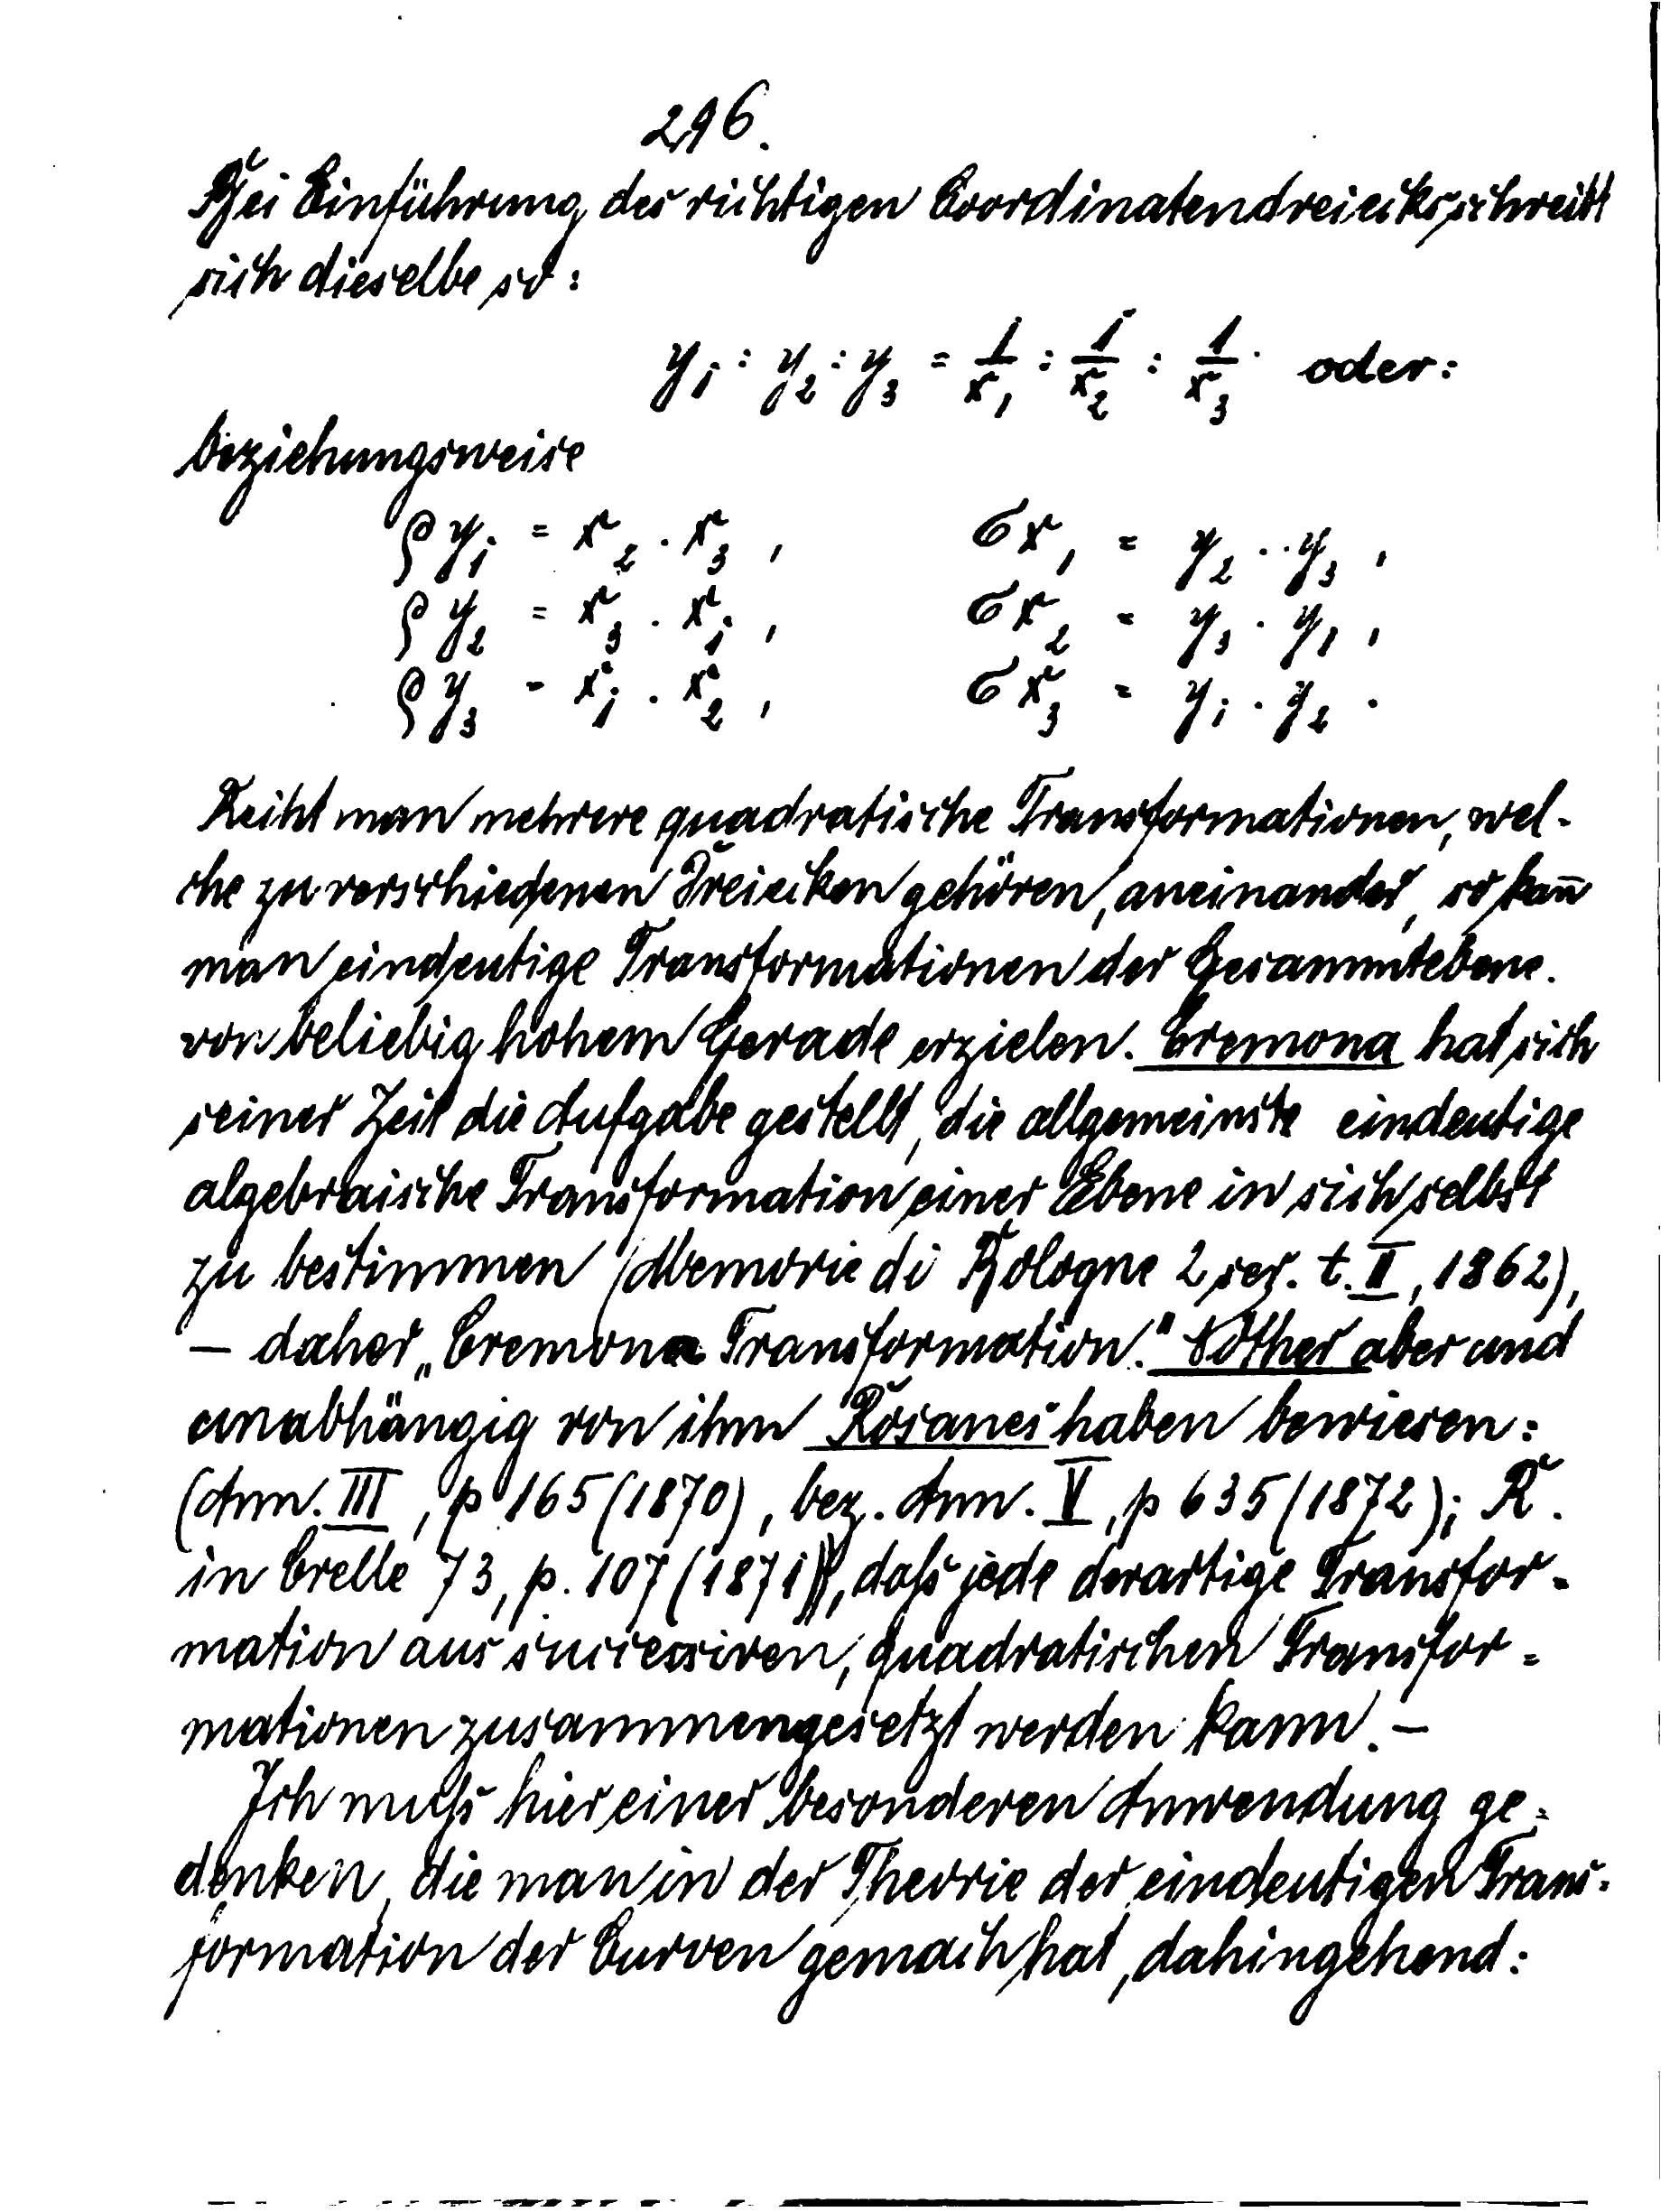 296.
Bei Einführung des richtigen Coordinatendreiecks schreibt
sich dieselbe so:
y₁ : y₂ : y₃ = 1/x₁ : 1/x₂ : 1/x₃ oder:
beziehungsweise
ϱy₁ = x₂ . x₃ , σx₁ = y₂ . y₃ ,
ϱy₂ = x₃ . x₁ , σx₂ = y₃ . y₁ ,
ϱy₃ = x₁ . x₂ , σx₃ = y₁ . y₂ .
Reiht man mehrere quadratische Transformationen, wel-
che zu verschiedenen Dreiecken gehören, aneinander, so kan̄
man eindeutige Transformationen der Gesammtebene.
von beliebig hohem Gerade erzielen. Cremona hat sich
seiner Zeit die Aufgabe gestellt, die allgemeinste eindeutige
algebraische Transformation einer Ebene in sich selbst
zu bestimmen (Memorie di Bologne 2 ser. t. II, 1862),
— daher „Cremona Transformation." Nöther aber und
unabhängig von ihm Rosanes haben bewiesen:
(Ann. III, p 165 (1870), bez. Ann. V, p 635 (1872); R.
in Crelle 73, p. 107 (1871)), daſs jede derartige Transfor-
mation aus successiven, quadratischen Transfor=
mationen zusammengesetzt werden kann. —
Ich muſs hier einer besonderen Anwendung ge=
denken, die man in der Theorie der eindeutigen Trans-
formation der Curven gemach hat, dahingehend: